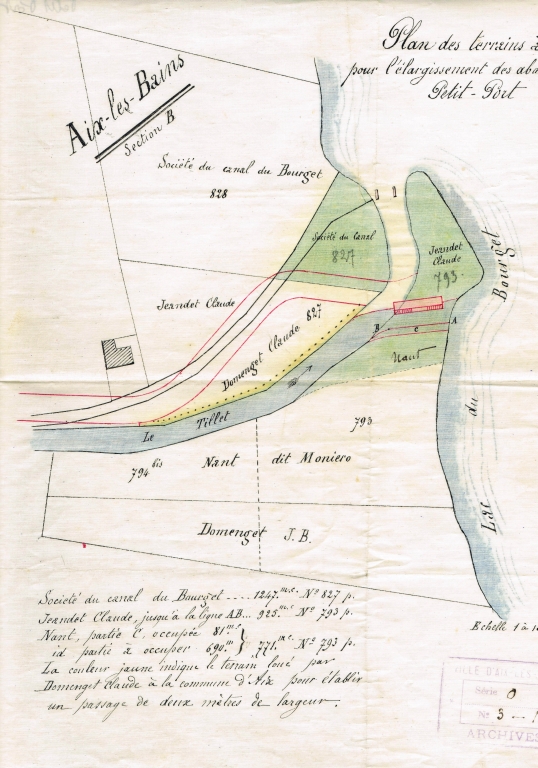 Plan des terrains à
pour l'élargissement des aba
Petit-Port
Aix-les-Bains
Section B
Société du canal du Bourget
828
Société du Canal
827
Jeandet
Claude
793
Jeandet Claude
Domenget Claude 827
B C A
Nant
Le Tillet
793
794 bis Nant dit Moniero
Domenget J.B.
Lac du Bourget
Société du canal du Bourget .... 1247 m.c. No 827 p.
Jeandet Claude, jusqu'à la ligne AB... 925 m.c. No 793 p.
Nant, partie C, occupée 81 m.c.
id partie à occuper 690 m. } 771 m.c. No 793 p.
La couleur jaune indique le terrain loué par
Domenget Claude à la commune d'Aix pour établir
un passage de deux mètres de largeur.
Echelle 1 à 10
VILLE D'AIX-LES-
Série O
No 3
ARCHIVES